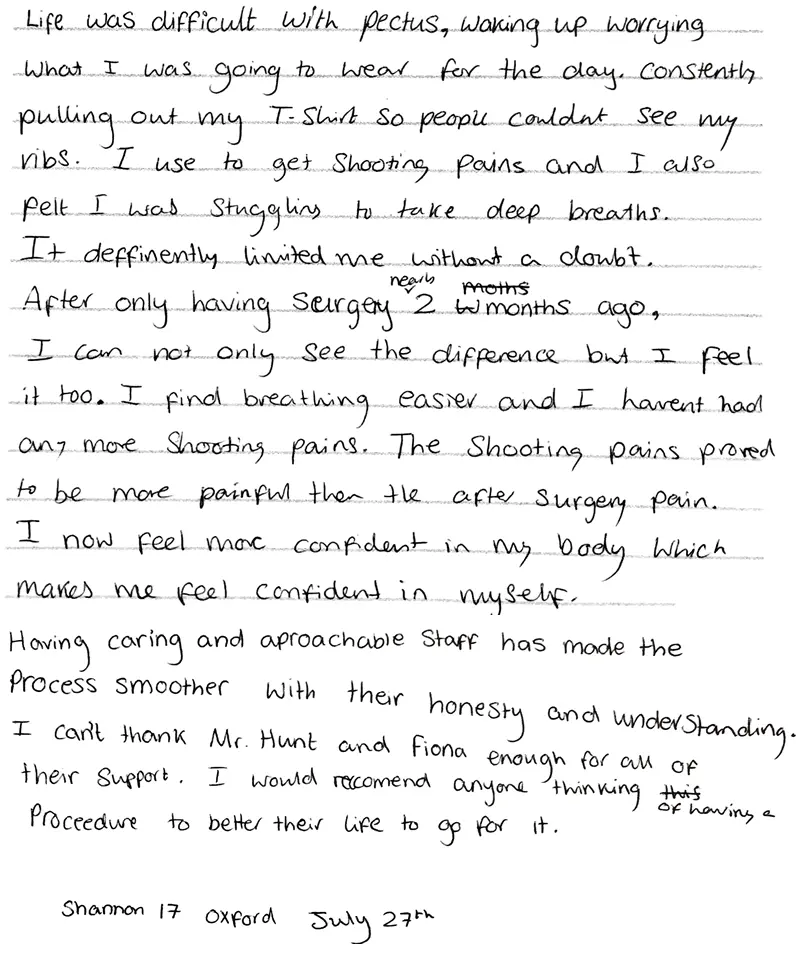 Life was difficult with pectus, waking up worrying
what I was going to wear for the day. Constently
pulling out my T-Shirt so people couldnt see my
ribs. I use to get shooting pains and I also
felt I was stuggling to take deep breaths.
It deffinently limited me without a doubt.
After only having seurgey nearly 2 moths months ago,
I can not only see the difference but I feel
it too. I find breathing easier and I havent had
any more shooting pains. The shooting pains proved
to be more painful then the after surgery pain.
I now feel more confident in my body which
makes me feel confident in myself.
Having caring and aproachable staff has made the
Process smoother with their honesty and understanding.
I can't thank Mr. Hunt and Fiona enough for all of
their support. I would recomend anyone thinking this
of having a
Proceedure to better their life to go for it.
Shannon 17 Oxford July 27th